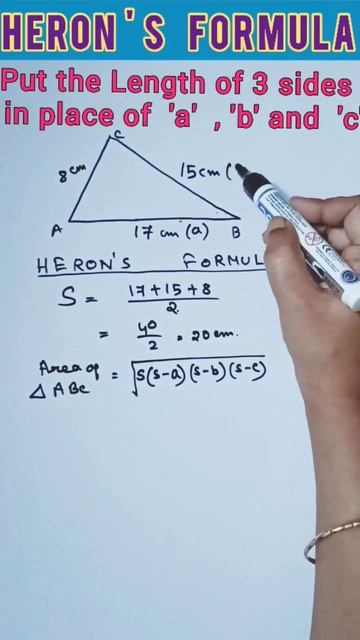 HERON'S FORMULA
Put the Length of 3 sides
in place of 'a' , 'b' and 'c'
C
8cm
15cm (
A
17 cm (a)
B
HERON'S FORMUL
S = 17+15+8
2
= 40
2 = 20cm.
Area of
△ ABC = √s(s-a)(s-b)(s-c)